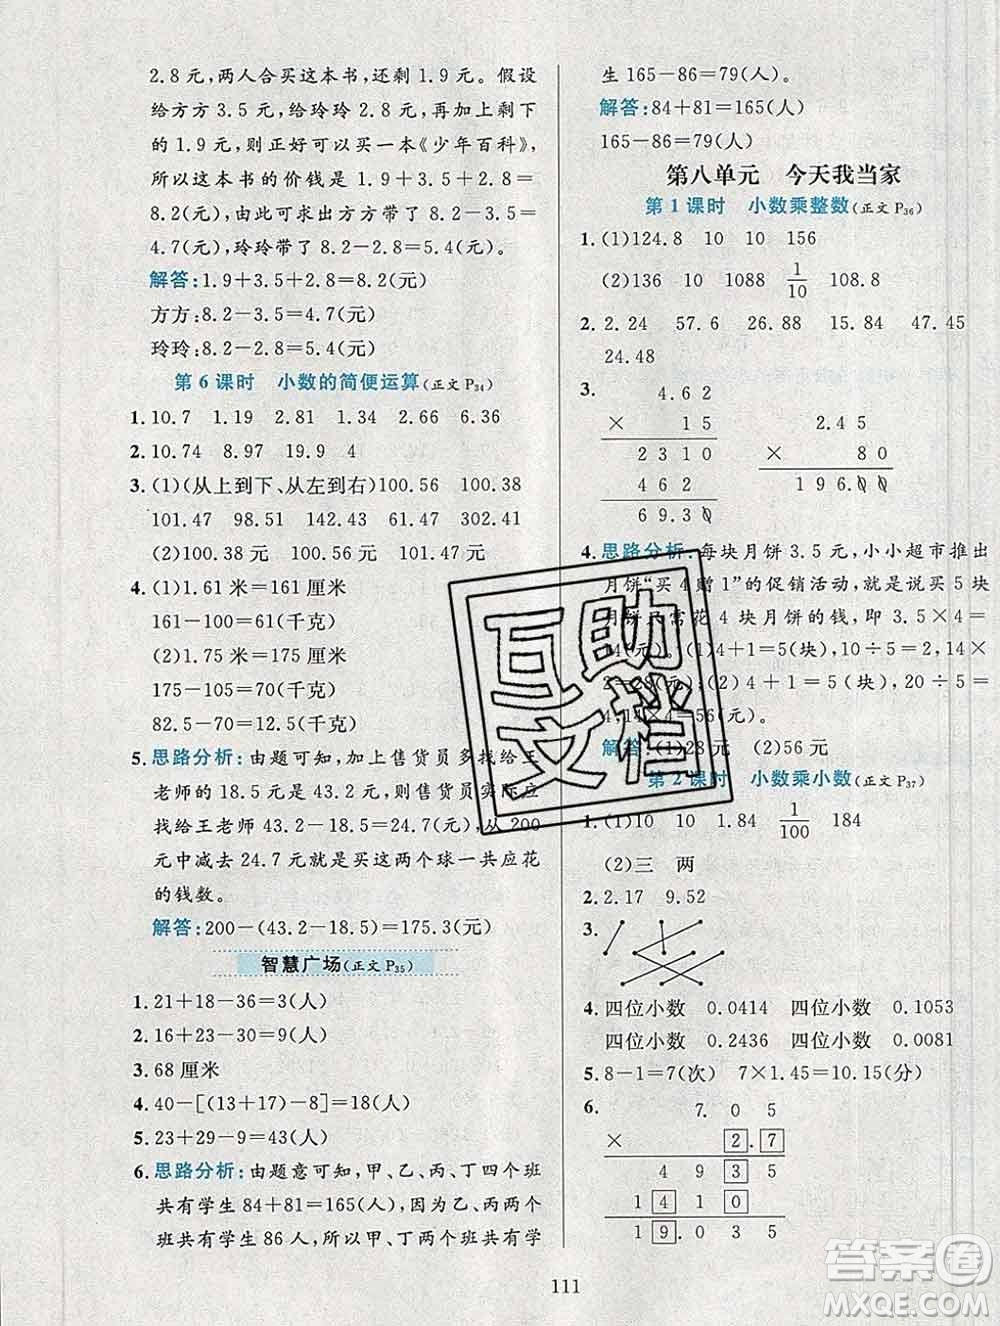 2.8元,两人合买这本书,还剩1.9元。假设
给方方3.5元,给玲玲2.8元,再加上剩下
的1.9元,则正好可以买一本《少年百科》,
所以这本书的价钱是1.9+3.5+2.8=
8.2(元),由此可求出方方带了8.2-3.5=
4.7(元),玲玲带了8.2-2.8=5.4(元)。
解答:1.9+3.5+2.8=8.2(元)
方方:8.2-3.5=4.7(元)
玲玲:8.2-2.8=5.4(元)
第6课时 小数的简便运算(正文P34)
1. 10.7 1.19 2.81 1.34 2.66 6.36
2. 10.74 8.97 19.9 4
3. (1)(从上到下、从左到右)100.56 100.25
101.47 98.51 142.43 61.07 302.41
(2)100.38元 100.45元
4. (1)1.61米=161厘米
161-100=61(千克)
(2)1.75米=175厘米
175-105=70(千克)
82.5-70=12.5(千克)
5. 思路分析:由题可知,加上售货员多找给王
老师的18.5元是43.2元,则售货员实际应
找给王老师43.2-18.5=24.7(元),从200
元中减去24.7元就是买这两个球一共应花
的钱数。
解答:200-(43.2-18.5)=175.3(元)
智慧广场(正文P35)
1. 21+18-36=3(人)
2. 16+23-30=9(人)
3. 68厘米
4. 40-[(13+17)-8]=18(人)
5. 23+29-9=43(人)
6. 思路分析:由题意可知,甲、乙、丙、丁四个班
共有学生84+81=165(人),因为乙、丙两个
班共有学生86人,所以甲、丁两个班共有学
生165-86=79(人)。
解答:84+81=165(人)
165-86=79(人)
第八单元 今天我当家
第1课时 小数乘整数(正文P36)
1. (1)124.8 10 10 156
(2)136 10 1088 1/10 108.8
2. 2.24 57.6 26.88 15.84 47.45
24.48
3. 4.62
× 15
2310
462
69.30
2.45
× 80
196.00
4. 思路分析:每块月饼3.5元,小小超市推出
月饼“买4赠1”的促销活动,就是说买5块
月饼只需花4块月饼的钱,即3.5×4=
14(元)。(1)4+1=5(块),10÷5=2,14×
2=28(元);(2)4+1=5(块),20÷5=
4,14×4=56(元)。
解答:(1)28元 (2)56元
第2课时 小数乘小数(正文P37)
1. (1)10 10 1.84 1/100 184
(2)三 两
2. 2.17 9.52
3.
4. 四位小数 0.0414 四位小数 0.1053
四位小数 0.2436 四位小数 0.0081
5. 8-1=7(次) 7×1.45=10.15(分)
6. 7.05
× 2.7
4935
1410
19.035
111
互助
文档
答案圈
MXQE.COM